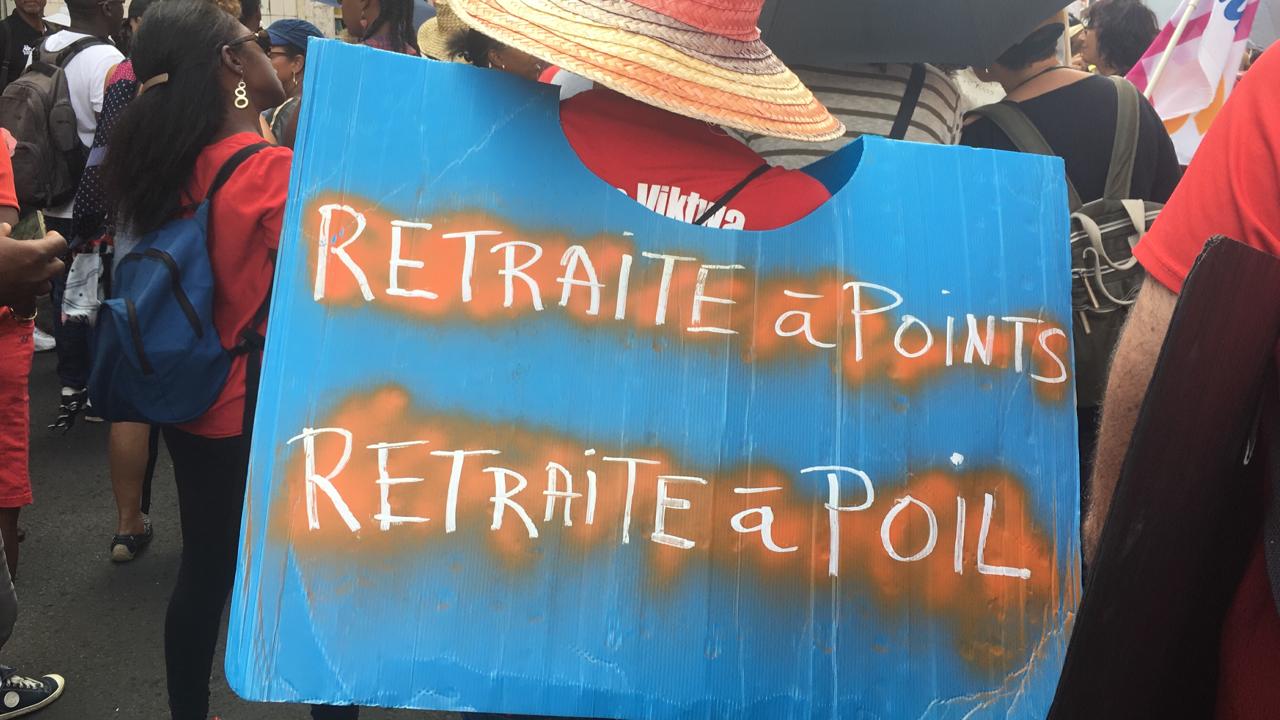 Viktwa
RETRAiTE ā POiNTS
RETRAiTE ā POiL